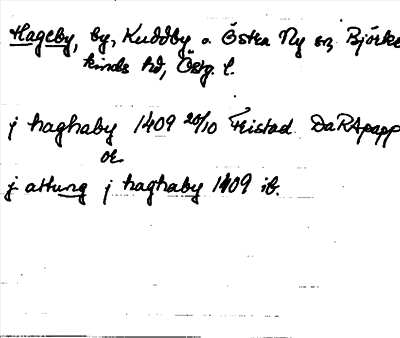 Hageby, by, Kuddby o. Östra Ny sn, Björke
kinds hd, Östg. l.
j haghaby 1409 20/10 Fristad DaRApapp
or
j attung j haghaby 1409 ib.